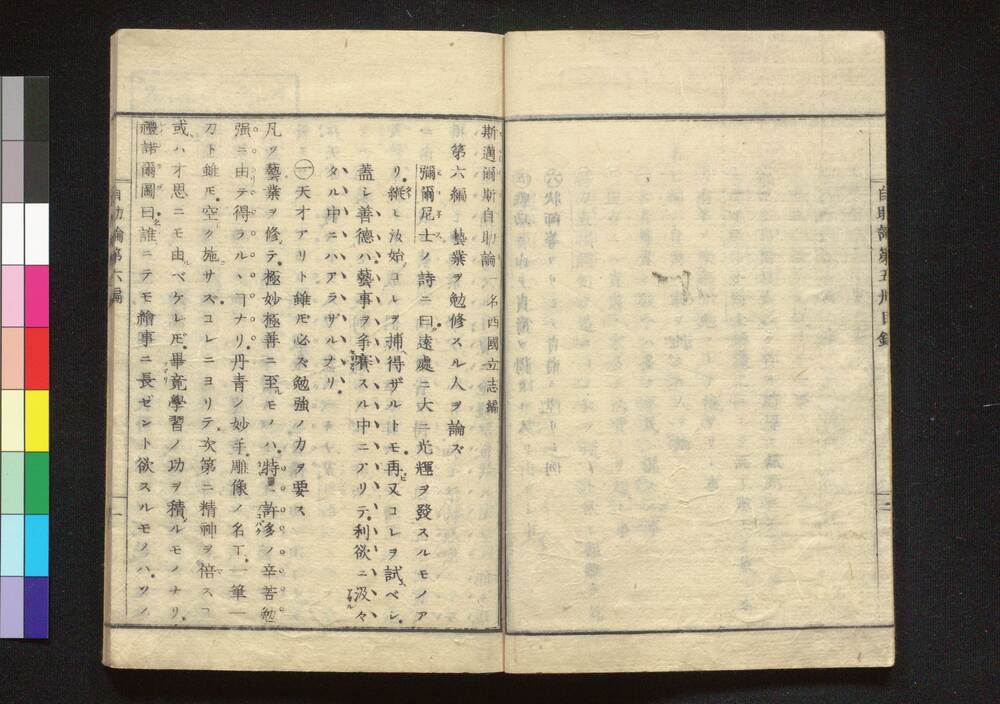 自助論第五冊目録
斯邁爾斯自助論 一名西國立志編
第六編 藝業ヲ勉修スル人ヲ論ズ
彌爾尼士ノ詩ニ曰遠處ニ大ニ光輝ヲ發スルモノア
リ縱ヒ汝始コレヲ捕得ザルトモ再又コレヲ試ベシ
蓋シ善德ハ藝事ヲ爭競スル中ニアリテ利欲ニ汲々
タル中ニハアラザルナリ
㊀天才アリト雖𪜈必ズ勉強ノ力ヲ要ス
凡ソ藝業ヲ修テ極妙極善ニ至モノハ特ニ許多ノ辛苦勉
强ニ由テ得ラルヽヿナリ丹青ノ妙手雕像ノ名工一筆一
刀ト雖𪜈空ク施サズコレニヨリテ次第ニ精神ヲ倍スヿ
或ハ才思ニモ由ベケレ𪜈畢竟學習ノ功ヲ積ルモノナリ
禮諾爾圖曰誰ニテモ繪事ニ長ゼント欲スルモノハソノ
自助論第六編
一